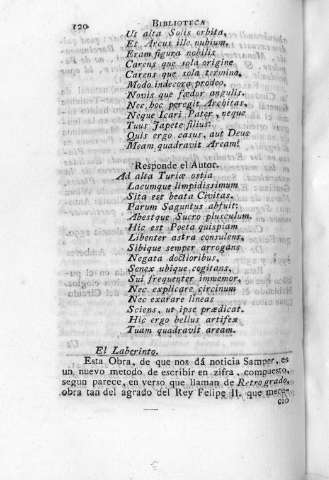 120 BIBLIOTECA
Ut alta Solis orbita,
Et Arcus illo nubium,
Eram figura nobilis
Carens que sola origine
Carens que sola termino,
Modo indecora prodeo,
Novis que fædor angulis.
Nec hoc peregit Architas,
Neque Icari Pater, neque
Tuus Japete filius:
Quis ergo casus, aut Deus
Meam quadravit Aream?
Responde el Autor.
Ad alta Turiæ ostia
Lacumque limpidissimum
Sita est beata Civitas,
Parum Saguntus abfuit;
Abestque Sucro plusculum.
Hic est Poeta quispiam
Libenter astra consulens,
Sibique semper arrogans
Negata doctioribus,
Senex ubique cogitans,
Sui frequenter immemor,
Nec explicare circinum
Nec exarare lineas
Sciens, ut ipse prædicat.
Hic ergo bellus artifex
Tuam quadravit aream.
El Laberinto.
Esta Obra, de que nos dá noticia Samper, es
un nuevo metodo de escribir en zifra, compuesto,
segun parece, en verso que llaman de Retrogrado,
obra tan del agrado del Rey Felipe II. que mere-
ció